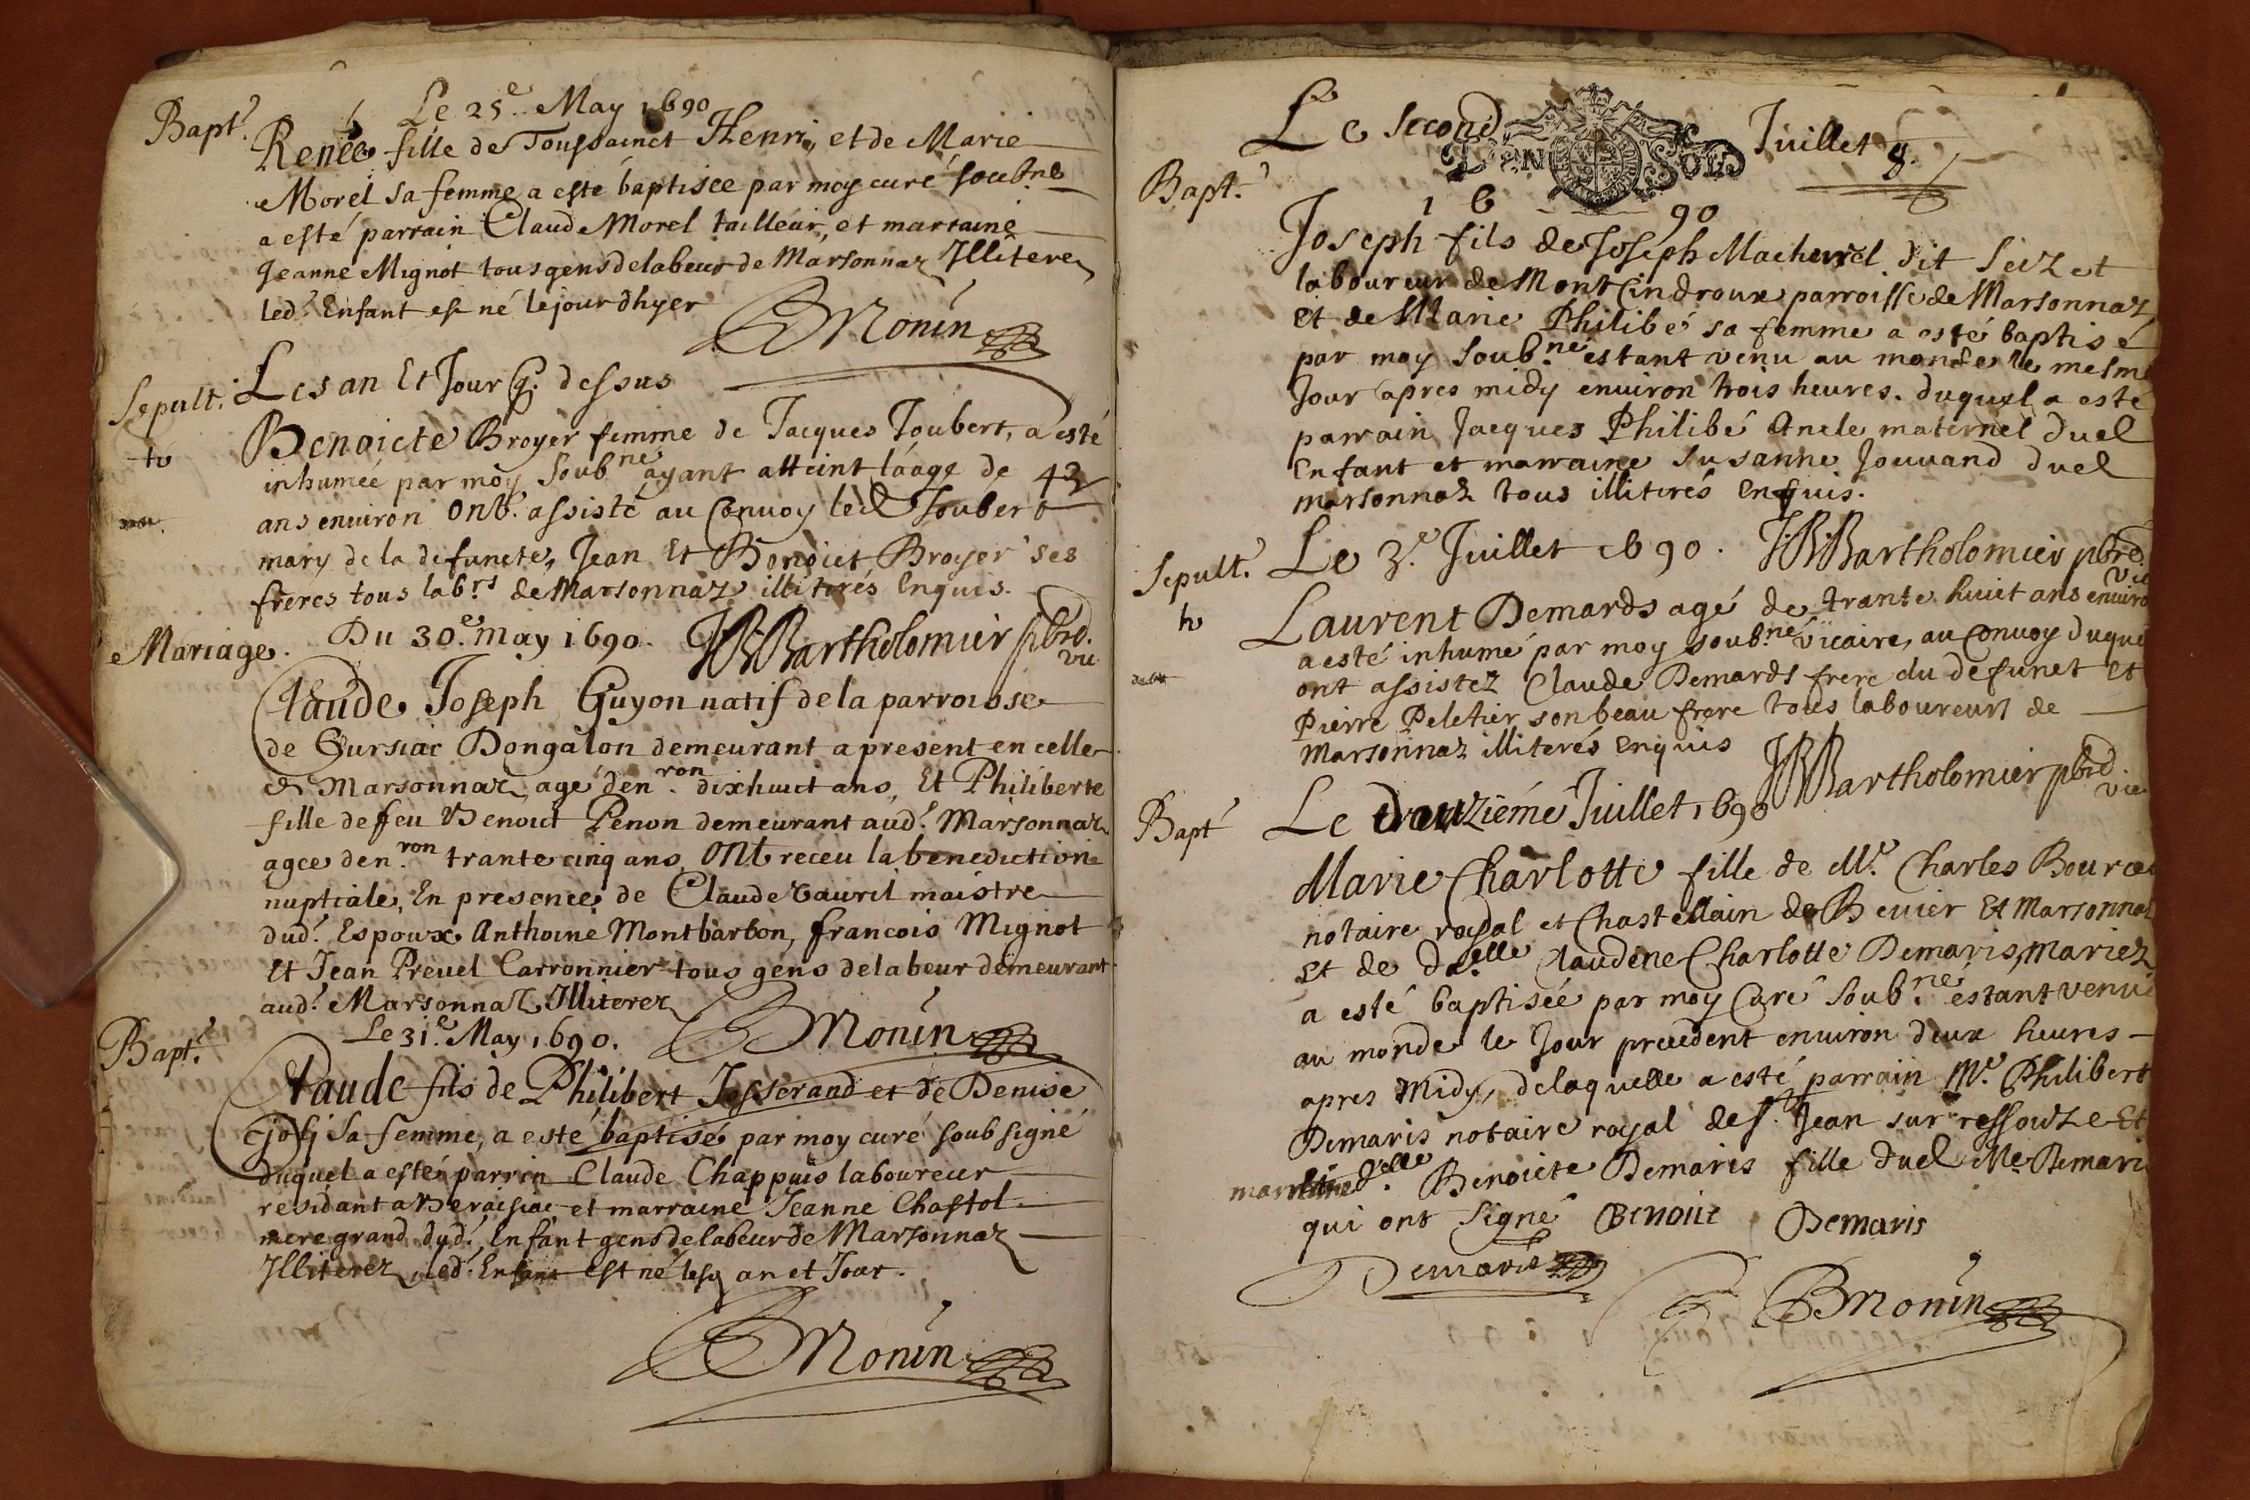 Le 25e May 1690
Bapt.
Renée fille de Toussainct Henri, et de Marie
Morel sa femme a esté baptisée par moy curé soubne
a esté parrain Claude Morel tailleur, et marraine
Jeanne Mignot tous gens de labeur de Marsonnaz Illiterez
led. Enfant est né le jour dhyer
BMonin
Sepult.
Les an Et Jour q. dessus
Benoicte Broyer femme de Jacques Joubert, a esté
inhumée par moy Soubne ayant atteint láage de 42
ans environ Ont. assisté au Convoy led Joubert
mary de la defuncte, Jean Et Benoict Broyer ses
freres tous labrs de Marsonnaz illiterés Enquis.
Mariage.
Du 30e. may 1690. JBBartholomier pbre.
vic
Claude Joseph Guyon natif de la parroisse
de Cursiac Dongalon demeurant a present en celle
de Marsonnaz, agé denron. dixhuict ans, Et Philiberte
fille de feu Benoict Penon demeurant aud. Marsonnaz
agee denron trante cinq ans, Ont receu la benediction
nuptiale, En presence de Claude Vauril maistre
dud. Espoux Anthoine Montbarbon, francois Mignot
Et Jean Prevel Carronnier tous gens de labeur demeurant
aud. Marsonnaz Illiterez
BMonin
Le 31e. May 1690.
Bapt.
Claude fils de Philibert Josserand et de Denise
Joly sa femme, a esté baptisé par moy curé soub signé
duquel a esté parrin Claude Chappuis laboureur
residant a et marraine Jeanne Chastol
mere grand dud. Enfant gens de labeur de Marsonnaz
Illiterez, led. Enfant est né lesq an et Jour.
BMonin
Le second Juillet 8.
DEN SOLS
Bapt.
16 90
Joseph fils de Joseph Macherel dit Seiz et
laboureur de Mont Cindroux parroisse de Marsonnaz
Et de Marie Philibé sa femme a esté baptisé
par moy Soubne. estant venu au monde le mesme
Jour apres midy environ trois heures. duquel a esté
parrain Jacques Philibé Oncle maternel dud
Enfant et marraine Susanne Jouvand dud
marsonnaz tous illiterés Enquis.
JBBartholomier pbre.
vic
Sepult.
Le 3.e Juillet 1690.
Laurent Demards agé de trante huict ans enviro
a esté inhumé par moy soubne. vicaire, au Convoy duque
ont assistez Claude Demards frere du defunct Et
Pierre Peletier son beau frere tous laboureurs de
Marsonnaz illiterés Enquis
JBBartholomier pbre.
vic
Bapt
Le douzième Juillet 1690
Marie Charlotte fille de Mr. Charles Bource
notaire royal et Chastellain de Bevier Et Marsonnaz
Et de Da.elle Claudene Charlotte Demaris, Mariez
a esté baptisée par moy Curé Soub.né estant venue
au monde le Jour precedent environ deux heures
apres Midy, delaquelle a esté parrain Me. Philibert
Demaris notaire royal de St. Jean sur ressouze Et
marraine d.elle Benoicte Demaris fille dud Me. Demaris
qui ont signé Benoite Demaris
Demaris
BMonin